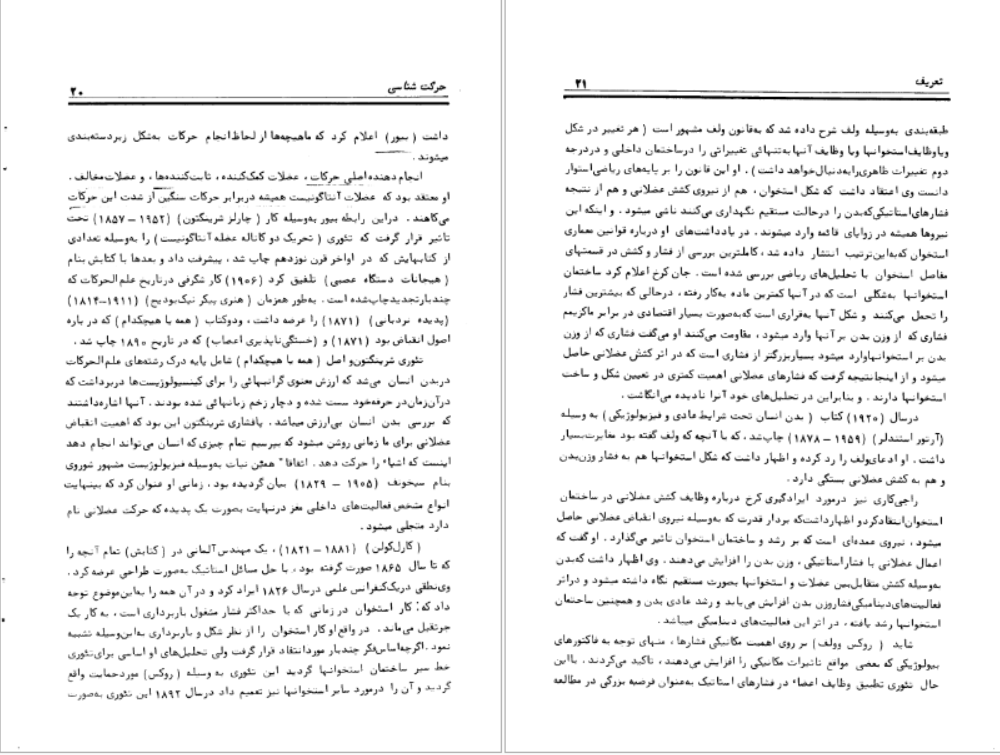 ۲۰
حرکت شناسی
داشت ( بیور) اعلام کرد که ماهیچه‌ها از لحاظ انجام حرکات به‌شکل زیر دسته‌بندی
میشوند .
انجام دهنده اصلی حرکات ، عضلات کمک‌کننده ، ثابت‌کننده‌ها ، و عضلات مخالف .
او معتقد بود که عضلات آنتاگونیست همیشه در برابر حرکات سنگین از شدت این حرکات
می‌کاهند . در این رابطه بیور به‌وسیله کار ( چارلز شرینگتون) (۱۹۵۲ – ۱۸۵۷) تحت
تاثیر قرار گرفت که تئوری ( تحریک دو کاناله عضله آنتاگونیست ) را به‌وسیله تعدادی
از کتابهایش که در اواخر قرن نوزدهم چاپ شد ، پیشرفت داد و بعدها با کتابش بنام
( هیجانات دستگاه عصبی ) تلفیق کرد (۱۹۰۶) کار شگرفی در تاریخ علم‌الحرکات که
چندبار تجدید چاپ شده است . به‌طور همزمان ( هنری پیکر نیک‌بودیج) (۱۹۱۱–۱۸۱۴)
(پدیده نردبانی ) (۱۸۷۱) را عرضه داشت ، و دو کتاب ( همه یا هیچکدام ) که در باره
اصول انقباض بود (۱۸۷۱) و (خستگی‌ناپذیری اعصاب) که در تاریخ ۱۸۹۰ چاپ شد .
تئوری شرینگتون و اصل ( همه یا هیچکدام ) شامل پایه درک رشته‌های علم‌الحرکات
در بدن انسان می‌شد که ارزش معنوی گرانبهائی را برای کینسیولوژیست‌ها در برداشت که
در آن زمان در حرفه خود سست شده و دچار زخم زبانهائی شده بودند . آنها اشاره داشتند
که بررسی بدن انسان بی‌ارزش میباشد . پافشاری شرینگتون این بود که اهمیت انقباض
عضلانی برای ما زمانی روشن میشود که بپرسیم تمام چیزی که انسان می‌تواند انجام دهد
اینست که اشیاء را حرکت دهد . اتفاقا" همین نیات به‌وسیله فیزیولوژیست مشهور شوروی
بنام سیخونف (۱۹۰۵ – ۱۸۲۹) بیان گردیده بود ، زمانی او عنوان کرد که بینهایت
انواع مشخص فعالیت‌های داخلی مغز در نهایت بصورت یک پدیده که حرکت عضلانی نام
دارد متجلی میشود .
( کارل‌کولن ) (۱۸۸۱ – ۱۸۲۱) ، یک مهندس آلمانی در ( کتابش ) تمام آنچه را
که تا سال ۱۸۶۵ صورت گرفته بود ، با حل مسائل استاتیک به‌صورت طراحی عرضه کرد .
وی نطقی در یک کنفرانس علمی در سال ۱۸۲۶ ایراد کرد و در آن همه را به این موضوع توجه
داد که : کار استخوان در زمانی که با حداکثر فشار مشغول باربرداری است ، به کار یک
جرثقیل می‌ماند . در واقع او کار استخوان را از نظر شکل و باربرداری به این وسیله تشبیه
نمود . اگرچه اساس فکر چندبار مورد انتقاد قرار گرفت ولی تحلیل‌های او اساسی برای تئوری
خط سیر ساختمان استخوانها گردید این تئوری به وسیله ( روکس) مورد حمایت واقع
گردید و آن را در مورد سایر استخوانها نیز تعمیم داد در سال ۱۸۹۲ این تئوری به‌صورت
۲۱
تعریف
طبقه‌بندی به‌وسیله ولف شرح داده شد که به‌قانون ولف مشهور است ( هر تغییر در شکل
و یا وظایف استخوانها و یا وظایف آنها به تنهائی تغییراتی را در ساختمان داخلی و در درجه
دوم تغییرات ظاهری را به‌دنبال خواهد داشت ) . او این قانون را بر پایه‌های ریاضی استوار
دانست وی اعتقاد داشت که شکل استخوان ، هم از نیروی کشش عضلانی و هم از نتیجه
فشارهای استاتیکی که بدن را در حالت مستقیم نگهداری می‌کنند ناشی میشود . و اینکه این
نیروها همیشه در زوایای قائمه وارد میشوند . در یادداشت‌های او درباره قوانین معماری
استخوان که به این ترتیب انتشار داده شد ، کاملترین بررسی از فشار و کشش در قسمتهای
مفاصل استخوان با تحلیل‌های ریاضی بررسی شده است . جان کرخ اعلام کرد ساختمان
استخوانها به‌شکلی است که در آنها کمترین ماده به‌کار رفته ، در حالی که بیشترین فشار
را تحمل می‌کنند و شکل آنها به‌قراری است که به‌صورت بسیار اقتصادی در برابر ماکزیمم
فشاری که از وزن بدن بر آنها وارد میشود ، مقاومت می‌کنند او می‌گفت فشاری که از وزن
بدن بر استخوانها وارد میشود بسیار بزرگتر از فشاری است که در اثر کشش عضلانی حاصل
میشود و از اینجا نتیجه گرفت که فشارهای عضلانی اهمیت کمتری در تعیین شکل و ساخت
استخوانها دارند . و بنابراین در تحلیل‌های خود آنرا نادیده می‌انگاشت .
در سال (۱۹۲۰) کتاب ( بدن انسان تحت شرایط عادی و فیزیولوژیکی ) به وسیله
(آرتور استندلر) (۱۹۵۹ – ۱۸۷۸) چاپ شد ، که با آنچه که ولف گفته بود مغایرت بسیار
داشت . او ادعای ولف را رد کرده و اظهار داشت که شکل استخوانها هم به فشار وزن بدن
و هم به کشش عضلانی بستگی دارد .
راجی‌کاری نیز در مورد ایرادگیری کرخ درباره وظایف کشش عضلانی در ساختمان
استخوان انتقاد کرد و اظهار داشت که بردار قدرت که به‌وسیله نیروی انقباض عضلانی حاصل
میشود ، نیروی عمده‌ای است که بر رشد و ساختمان استخوان تاثیر می‌گذارد . او گفت که
اعمال عضلانی با فشار استاتیکی ، وزن بدن را افزایش می‌دهند . وی اظهار داشت که بدن
به‌وسیله کشش متقابل بین عضلات و استخوانها بصورت مستقیم نگاه داشته میشود و در اثر
فعالیت‌های دینامیکی فشار وزن بدن افزایش می‌یابد و رشد عادی بدن و همچنین ساختمان
استخوانها رشد یافته ، در اثر این فعالیت‌های دینامیکی میباشد .
شاید ( روکس وولف ) بر روی اهمیت مکانیکی فشارها ، منهای توجه به فاکتورهای
بیولوژیکی که بعضی مواقع تاثیرات مکانیکی را افزایش می‌دهند ، تاکید می‌کردند . با این
حال تئوری تطبیق وظایف اعضاء در فشارهای استاتیک به‌عنوان فرضیه بزرگی در مطالعه